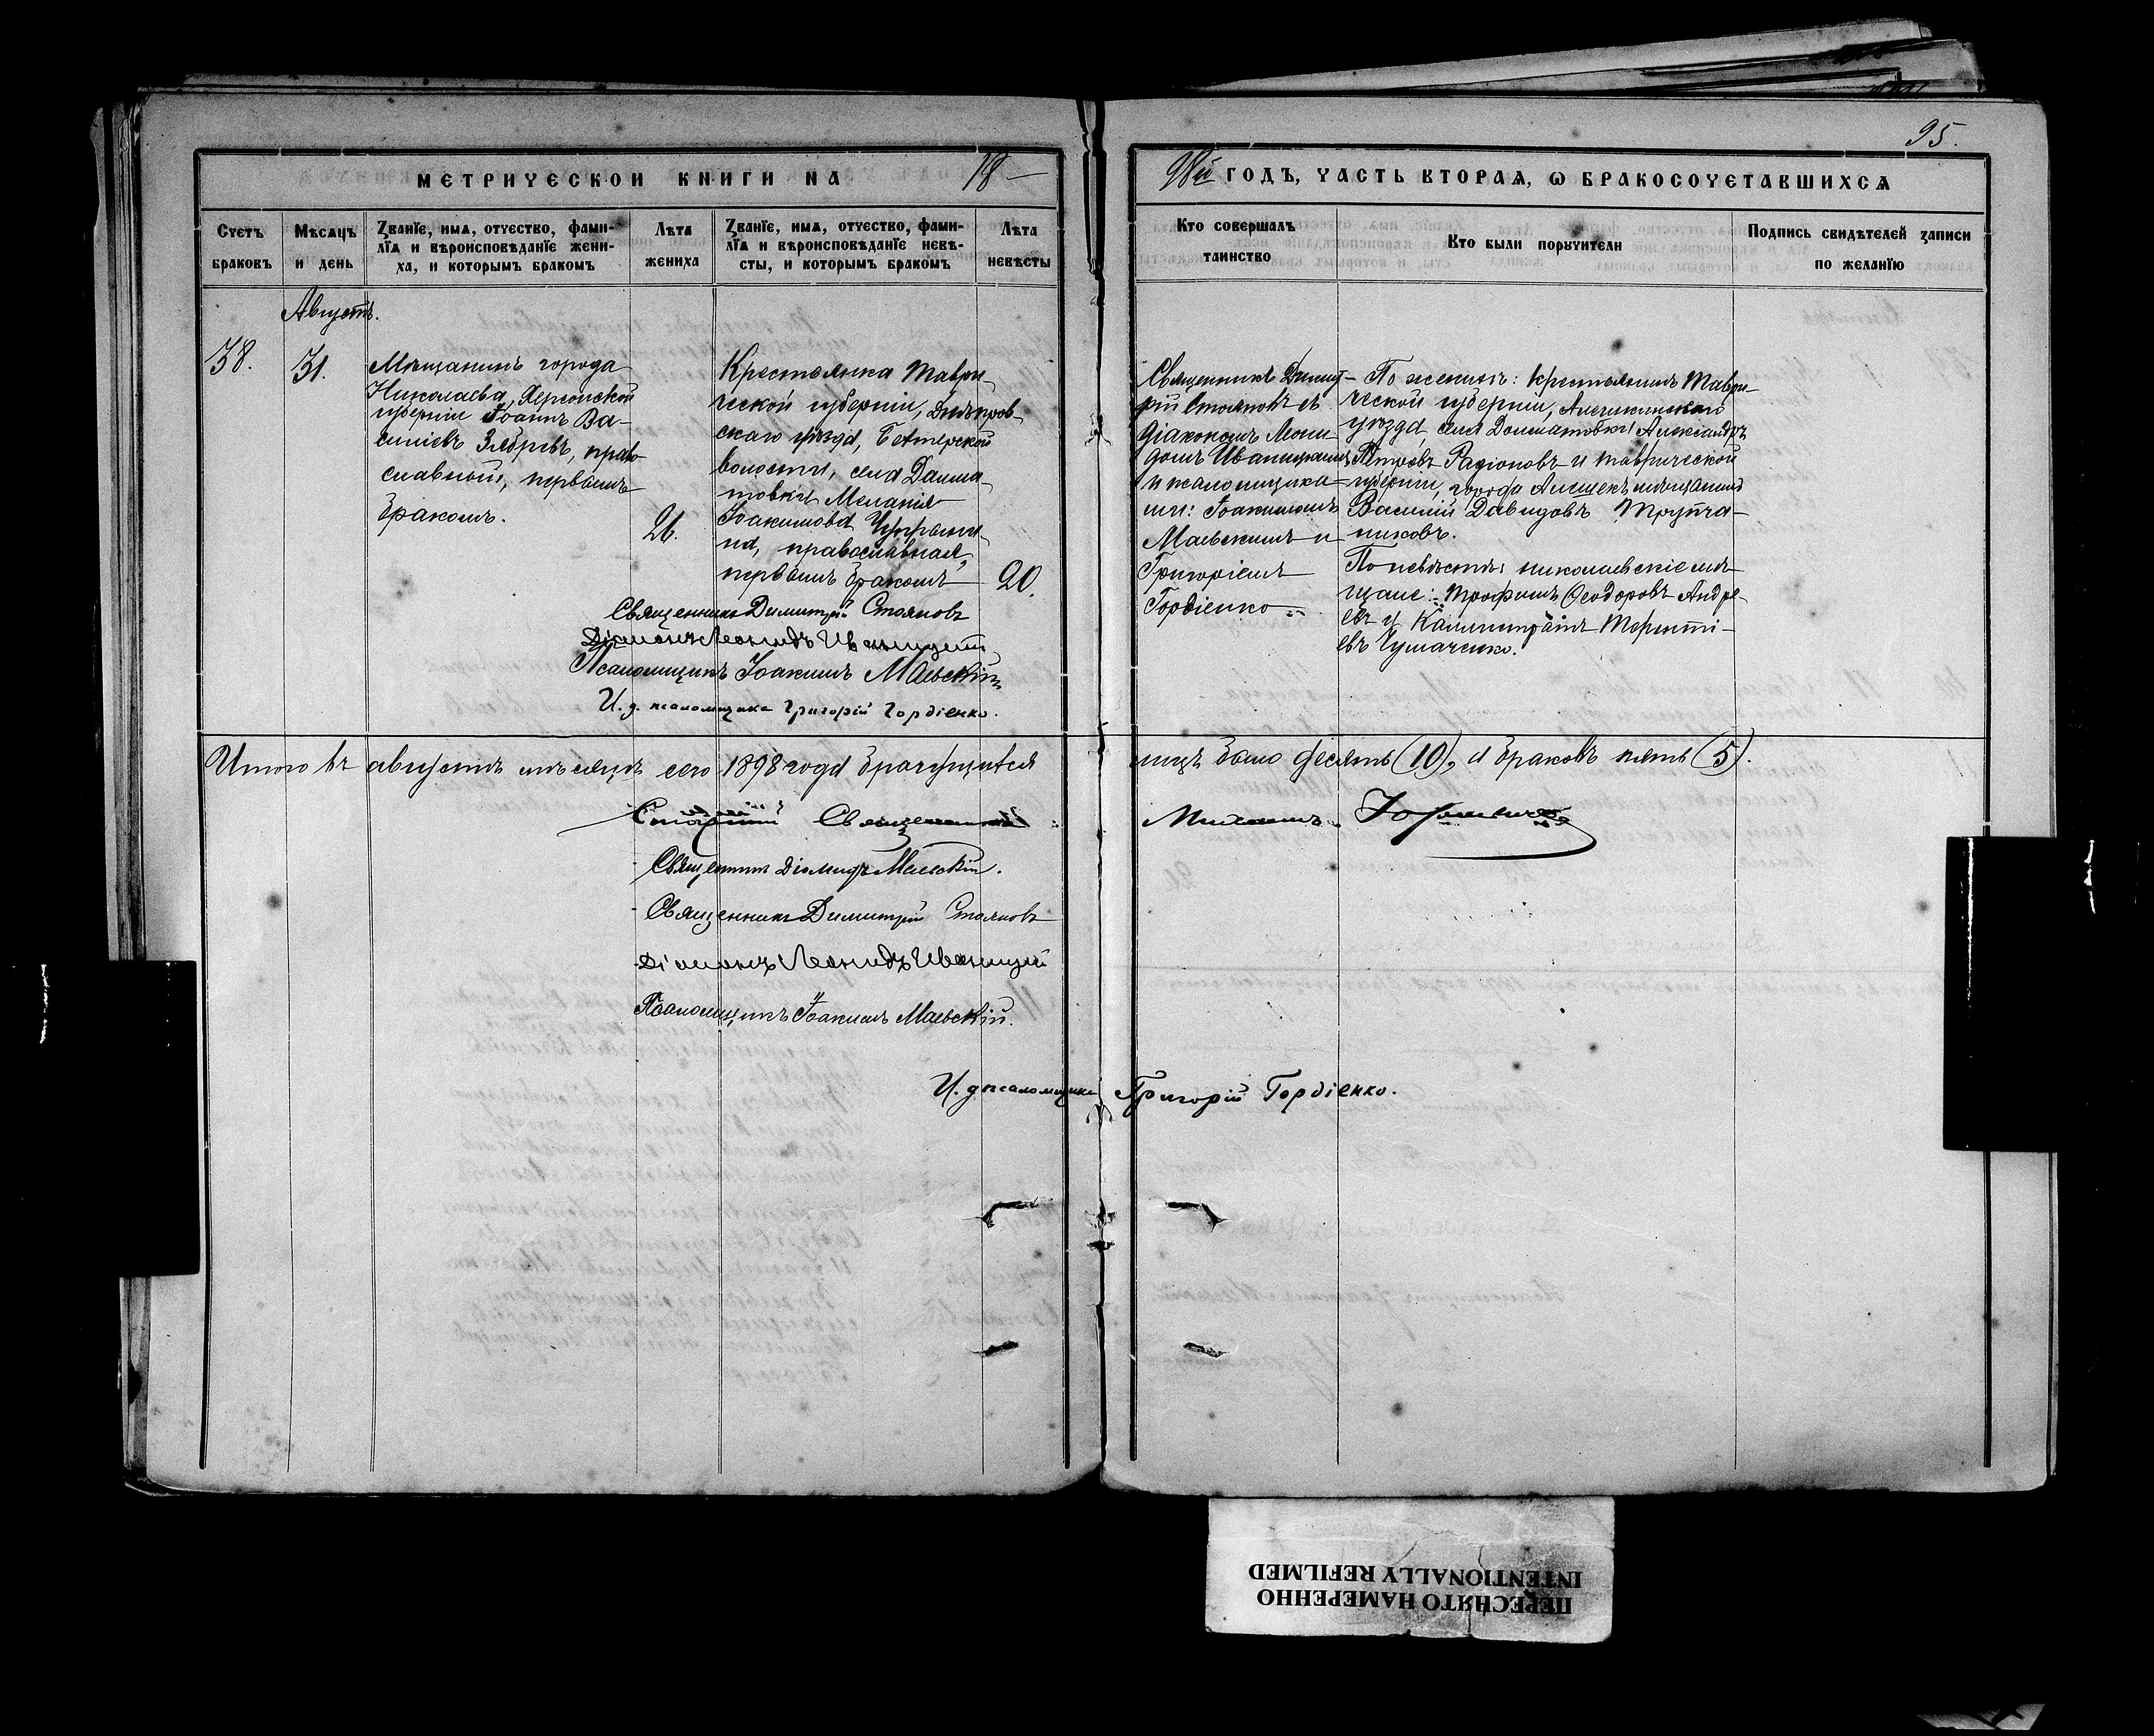 95.
МЕТРИЧЕСКОЙ КНИГИ НА 18
98й ГОДЪ, ЧАСТЬ ВТОРАѦ, Ѡ БРАКОСОЧЕТАВШИХСѦ
Счетъ браковъ
Мѣсяцъ и день
Званїе, имѧ, отчество, фами-
лїѧ и вѣроисповѣданїе жени-
ха, и которымъ бракомъ
Лѣта жениха
Званїе, имѧ, отчество, фами-
лїѧ и вѣроисповѣданїе невѣ-
сты, и которымъ бракомъ
Лѣта невѣсты
Кто совершалъ таинство
Кто были поручители
Подпись свидѣтелей записи
по желанїю
Августъ.
38.
31.
Мѣщанинъ города
Николаева, Херсонской
губерніи Іоаннъ Ва-
силіевъ, право-
славный, первымъ
бракомъ.
26.
Крестьянка Таври-
ческой губерніи, Днѣпров-
скаго уѣзда,
волости, села
Меланія
Іоакимова
на, православная,
первымъ бракомъ
20.
Священникъ Димит-
рій Стояновъ съ
діакономъ Леони-
домъ Иваницкимъ
и псаломщика-
ми: Іоакимомъ
Маевскимъ и
Григоріемъ
Гордіенко
По женихѣ: крестьянинъ Таври-
ческой губерніи,
уѣзда, села Александръ
Петровъ Радіоновъ и таврической
губерніи, города Алешекъ мѣщанинъ
Василій Давидовъ Трупча-
никовъ.
По невѣстѣ: николаевскіе мѣ-
щане: Трофимъ Ѳеодоровъ Андре-
евъ и Каллистратъ Терентi-
евъ Чумаченко.
Священникъ Димитрій Стояновъ
Діаконъ Леонидъ Иваницкій
Псаломщикъ Іоакимъ Маевскій
И. д. псаломщика Григорій Гордіенко.
Итого въ августѣ мѣсяцѣ сего 1898 года брачущихся лицъ было десять (10), а браковъ пять (5).
Священникъ Михаилъ
Священникъ Діомидъ Маевскій.
Священникъ Димитрій Стояновъ
Діаконъ Леонидъ Иваницкій
Псаломщикъ Іоакимъ Маевскій.
И. д. псаломщика Григорій Гордіенко.
ПЕРЕСНЯТО НАМЕРЕННО
INTENTIONALLY REFILMED